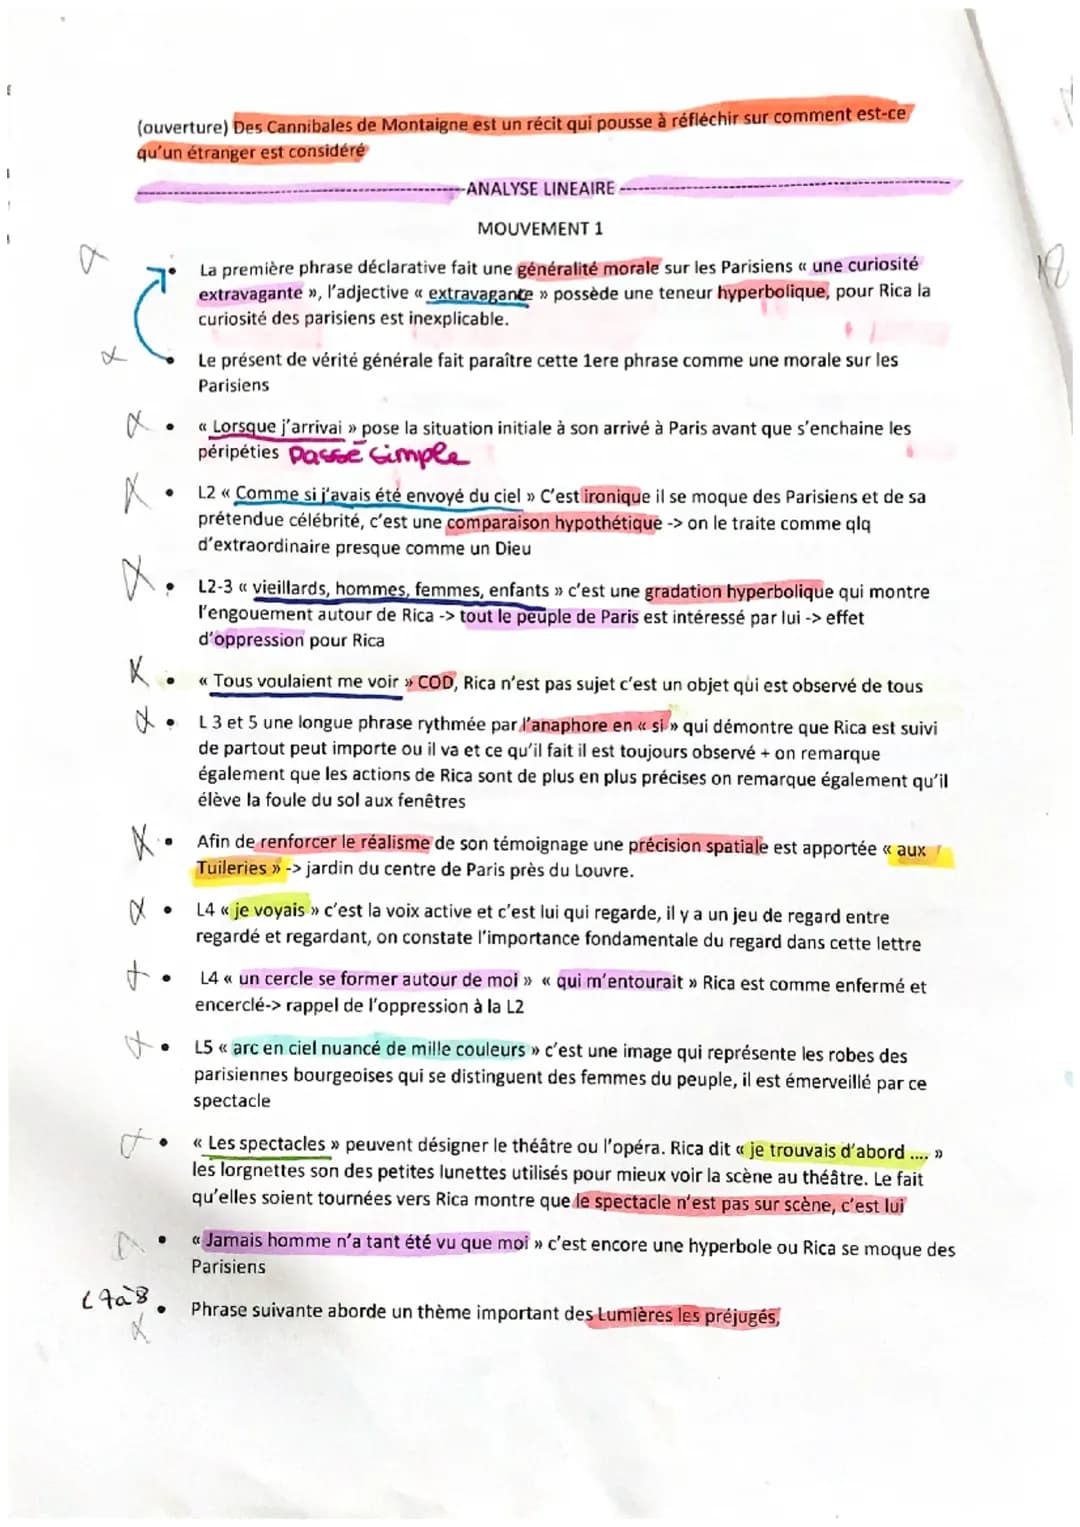 (ouverture) Des Cannibales de Montaigne est un récit qui pousse à réfléchir sur comment est-ce
qu'un étranger est considéré
ANALYSE LINEAIRE
MOUVEMENT 1
• La première phrase déclarative fait une généralité morale sur les Parisiens « une curiosité
extravagante », l'adjective « extravagante » possède une teneur hyperbolique, pour Rica la
curiosité des parisiens est inexplicable.
• Le présent de vérité générale fait paraître cette 1ere phrase comme une morale sur les
Parisiens
• « Lorsque j'arrivai » pose la situation initiale à son arrivé à Paris avant que s'enchaine les
péripéties Passé simple
• L2 « Comme si j'avais été envoyé du ciel » C'est ironique il se moque des Parisiens et de sa
prétendue célébrité, c'est une comparaison hypothétique -> on le traite comme qlq
d'extraordinaire presque comme un Dieu
• L2-3 « vieillards, hommes, femmes, enfants » c'est une gradation hyperbolique qui montre
l'engouement autour de Rica -> tout le peuple de Paris est intéressé par lui -> effet
d'oppression pour Rica
• « Tous voulaient me voir » COD, Rica n'est pas sujet c'est un objet qui est observé de tous
• L 3 et 5 une longue phrase rythmée par l'anaphore en « si » qui démontre que Rica est suivi
de partout peut importe ou il va et ce qu'il fait il est toujours observé + on remarque
également que les actions de Rica sont de plus en plus précises on remarque également qu'il
élève la foule du sol aux fenêtres
• Afin de renforcer le réalisme de son témoignage une précision spatiale est apportée « aux
Tuileries » -> jardin du centre de Paris près du Louvre.
• L4 « je voyais » c'est la voix active et c'est lui qui regarde, il y a un jeu de regard entre
regardé et regardant, on constate l'importance fondamentale du regard dans cette lettre
• L4 « un cercle se former autour de moi » « qui m'entourait » Rica est comme enfermé et
encerclé-> rappel de l'oppression à la L2
• L5 « arc en ciel nuancé de mille couleurs » c'est une image qui représente les robes des
parisiennes bourgeoises qui se distinguent des femmes du peuple, il est émerveillé par ce
spectacle
• « Les spectacles » peuvent désigner le théâtre ou l'opéra. Rica dit « je trouvais d'abord .... »
les lorgnettes son des petites lunettes utilisés pour mieux voir la scène au théâtre. Le fait
qu'elles soient tournées vers Rica montre que le spectacle n'est pas sur scène, c'est lui
• « Jamais homme n'a tant été vu que moi » c'est encore une hyperbole ou Rica se moque des
Parisiens
L7à8
• Phrase suivante aborde un thème important des Lumières les préjugés,